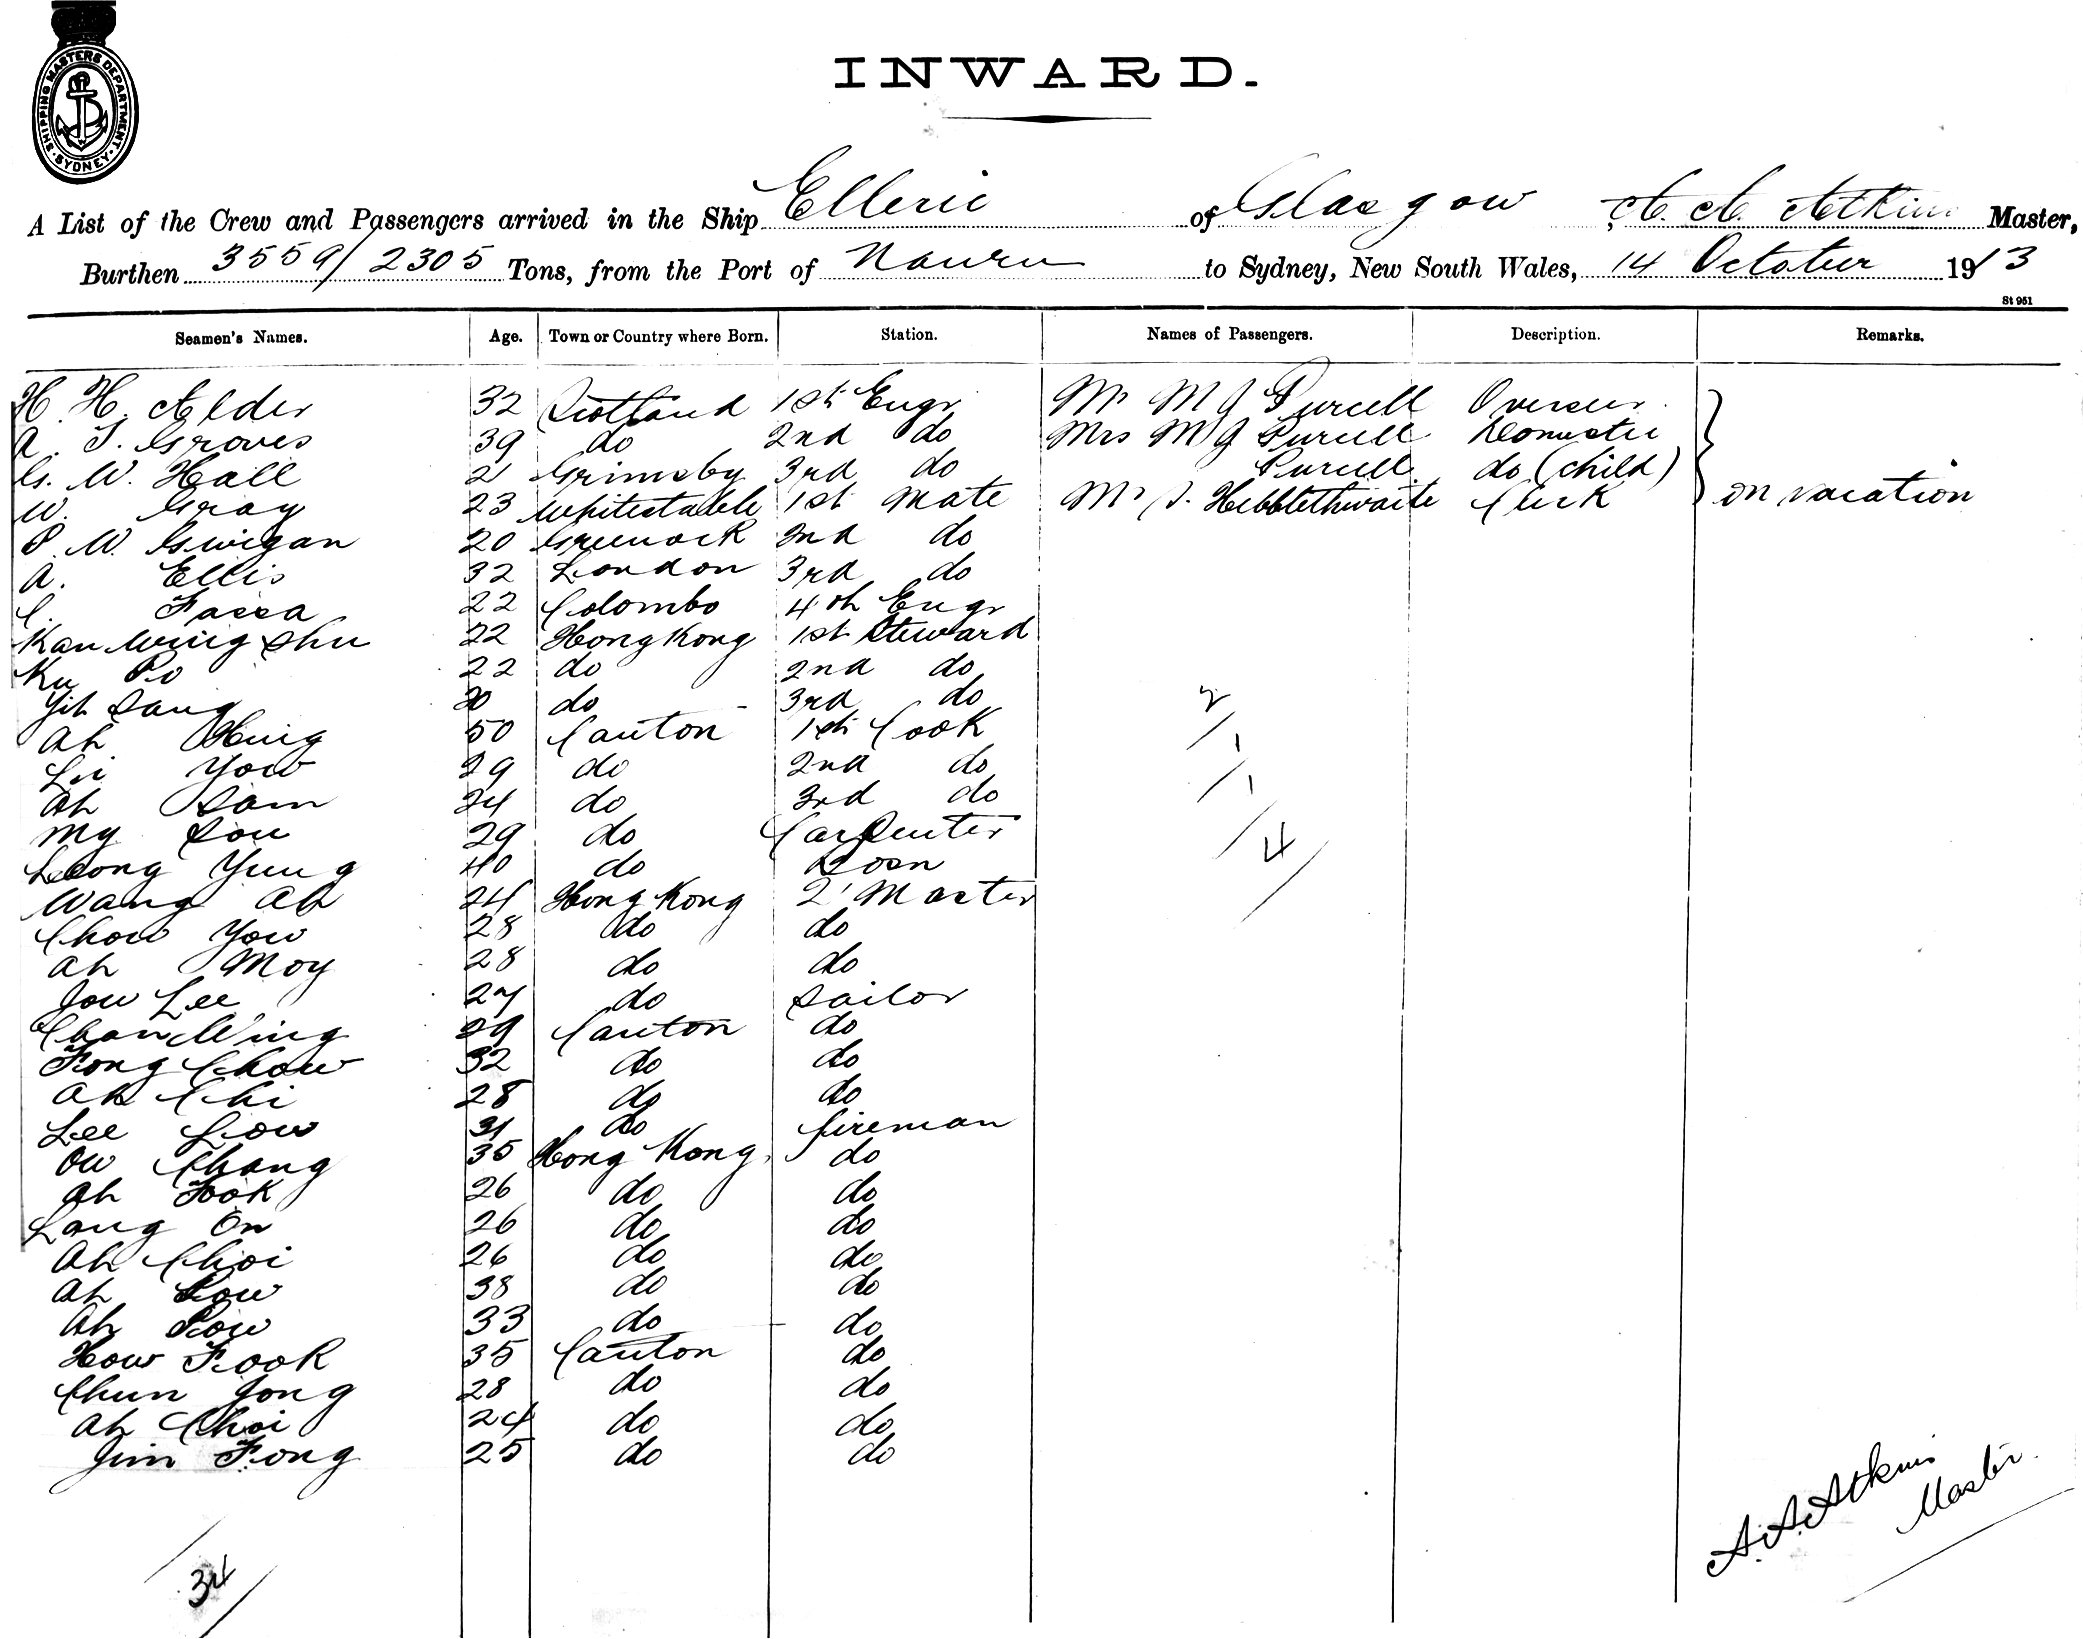 SHIPPING MASTERS DEPARTMENT · SYDNEY ·
INWARD.
A List of the Crew and Passengers arrived in the Ship Elleric of Glasgow A. A. Atkins Master,
Burthen 3559/2305 Tons, from the Port of Nauru to Sydney, New South Wales, 14 October 1913
St 951
Seamen's Names. Age. Town or Country where Born. Station. Names of Passengers. Description. Remarks.
H. H. Alder 32 Scotland 1st Engr Mr M J Purcell Overseer
A. T. Groves 39 do 2nd do Mrs M J Purcell Domestic
G. W. Hall 21 Grimsby 3rd do Purcell do (child)
W. Gray 23 Whitestable 1st Mate Mr J. Hebblethwaite Clerk on vacation
P. W. Gwigan 20 Greenock 2nd do
A. Ellis 32 London 3rd do
C. Fassa 22 Colombo 4th Engr
Kan Wing Shu 22 Hong Kong 1st Steward
Ku Po 22 do 2nd do
Yit Sang 20 do 3rd do
Ah Hing 50 Canton 1st Cook
Lii Yow 29 do 2nd do
Ah Sam 24 do 3rd do
My Sou 29 do Carpenter
Leong Yung 40 do Bosn
Wang Ah 24 Hong Kong 2' Master
Chow Yow 28 do do
Ah Moy 28 do do
Jow Lee 27 do Sailor
Chan Wing 29 Canton do
Fong Chow 32 do do
Ah Chi 28 do do
Lee Low 31 do fireman
Ow Chang 35 Hong Kong do
Ah Fook 26 do do
Lang On 26 do do
Ah Choi 26 do do
Ah Low 38 do do
Ah Pow 33 do do
How Fook 35 Canton do
Chun Jong 28 do do
Ah Choi 24 do do
Jim Fong 25 do do
2/1/1/4/
A. A. Atkins
Master
34